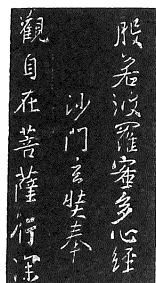 般若波羅蜜多心經
沙門玄奘奉
觀自在菩薩行深